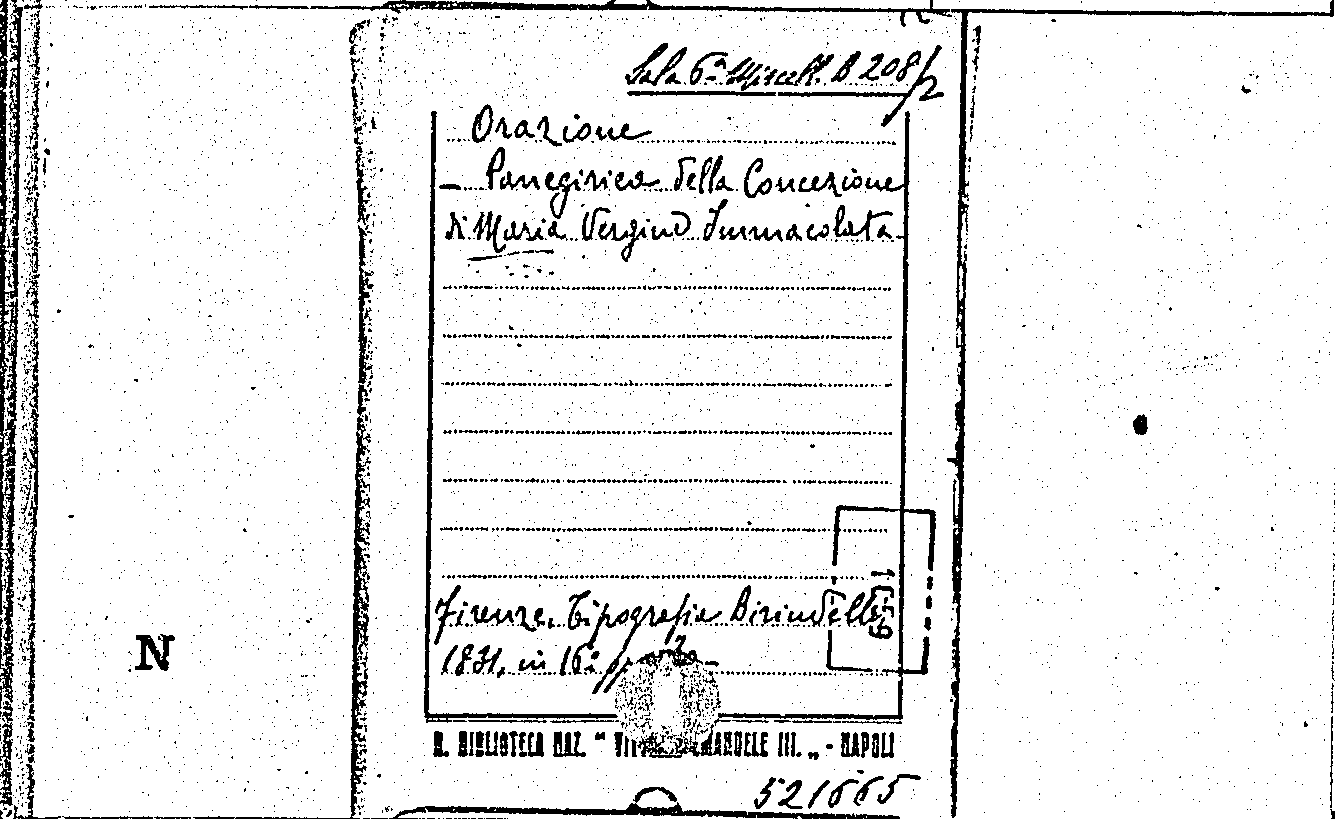 Sala 6ª Miscell. B 208/2
Orazione
- Panegirico della Concezione
di Maria Vergine Immacolata.
Firenze. Tipografia Birindelli
1831, in 16º
N
R. BIBLIOTECA NAZ. " VITTORIO EMANUELE III. „ - NAPOLI
521665